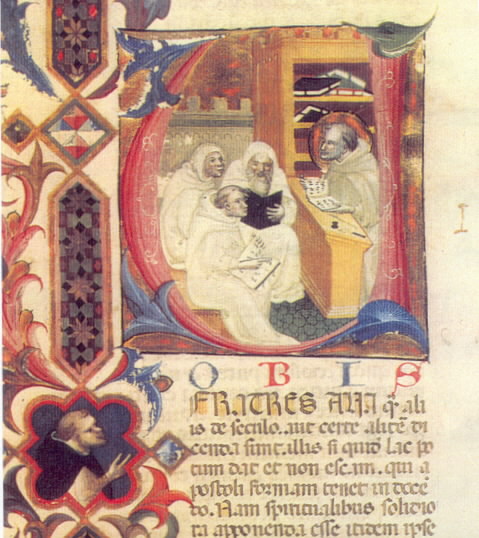 VOBIS
FRATRES ALIA q̃ ali
is de seculo. aut certe alitẽ di
cenda sunt. illis si quidẽ lac po
tum dat et non escam. qui a
postoli formam tenet in docẽ
do. Nam spiritualibus solidio
ra apponenda esse itidem ipse